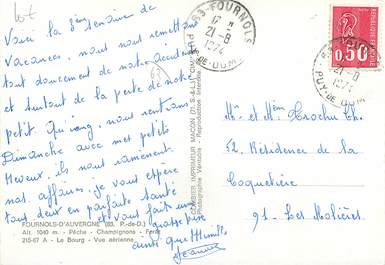 Voici la 3ème semaine de
vacances, nous nous remettons
tout doucement de notre accident
et surtout de la perte de notre
petit. nous rentrons
Dimanche avec mes petits
Neveux, ils nous ramènent.
mal. affaires. je vous espère
tout deux en parfaite santé
et vous fait une grosse bise
ainsi que
Jeanne
FOURNOLS-D'AUVERGNE (63. P.-de-D.)
Alt. 1040 m. - Pêche - Champignons - Forêt
215-67 A - Le Bourg - Vue aérienne
COMBIER IMPRIMEUR MACON (71. S.-&-L.)
Photographie Véritable - Reproduction Interdite
63 FOURNOLS
17 H
21-8
1974
PUY-DE-DOME
63 FOURNOLS
21-8
1974
PUY-DE-DOME
0,50
Mr et Mme Trochu Ch.
52, Résidence de la
Coquetière
91 - Les Molières